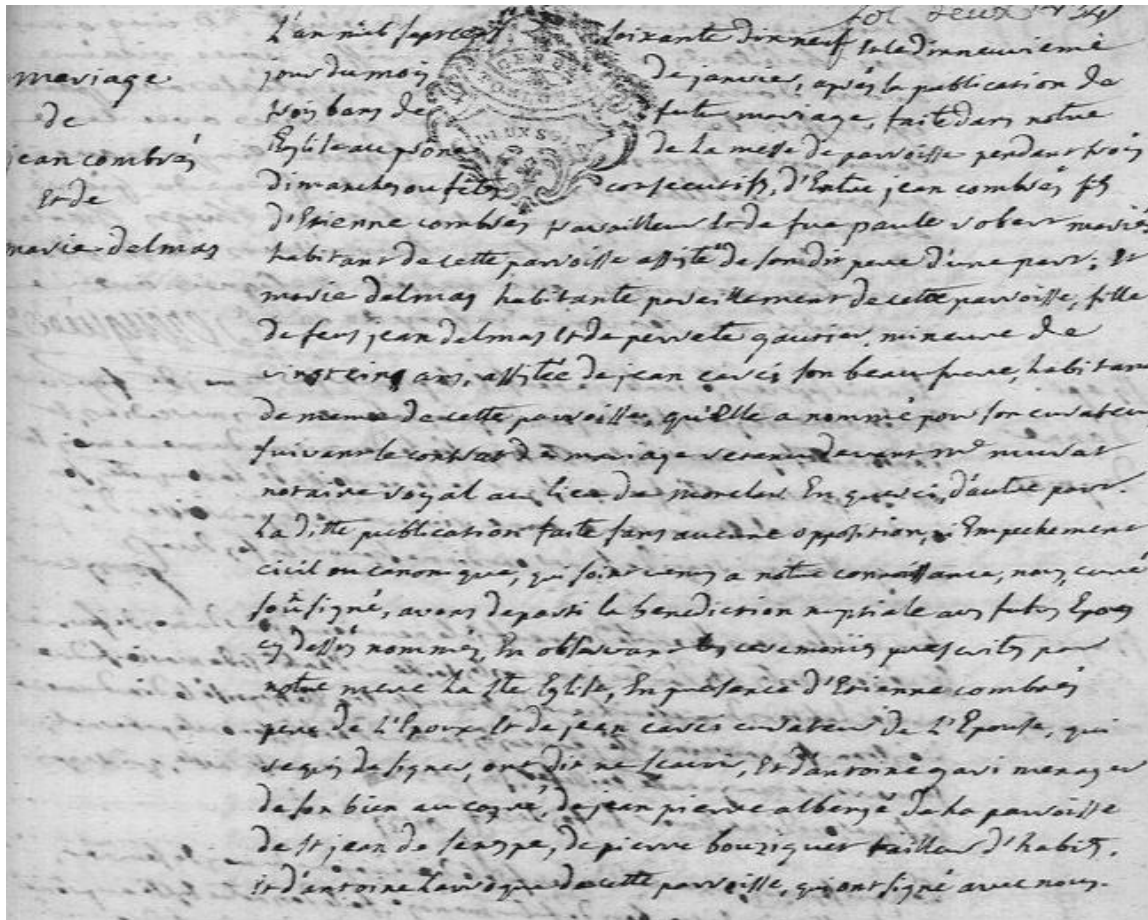 sol deux d.
L'an mil sept cens soixante dix neuf et le dixneuvieme
jour du mois de janvier, après la publication de
trois bans de futur mariage, faite dans notre
Eglise au prone de la messe de parroisse pendant trois
dimanches ou fêtes consecutifs, d'Entre jean combrés fils
d'Etienne combrés travailleur et de fue paule robert mariés
habitant de cette parroisse assisté de son dit pere d'une part; Et
marie delmas habitante pareillement de cette parroisse, fille
de feus jean delmas et de perrete gautier, mineure de
vingt cinq ans, assistée de jean carcés son beau frere, habitant
de meme de cette parroisse, qu'Elle a nommé pour son curateur
suivant le contrat de mariage retenu devant mr murat
notaire royal au lieu de monclar En querci, d'autre part.
La ditte publication faite sans aucune opposition, ni Empechement
civil ou canonique, qui soint venus a notre connoissance, nous, curé
soûsigné, avons departi la benediction nuptiale aux futurs Epoux
cy dessés nommés, En observant les ceremonies prescrites par
notre mere la Ste Eglise, En presence d'Etienne combrés
pere de L'Epoux et de jean carcés curateur de L'Epouse, qui
requis de signer, ont dit ne sçavoir, Et d'antoine gari menager
de son bien au cogné, de jean pierre albengé de la parroisse
de st jean de senespe, de pierre bouziguet tailleur d'habits,
et d'antoine laroque de cette parroisse, qui ont signé avec nous.
mariage
de
jean combrés
Et de
marie delmas